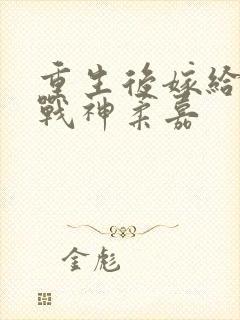 重生後嫁給
戰神柔嘉
金彪